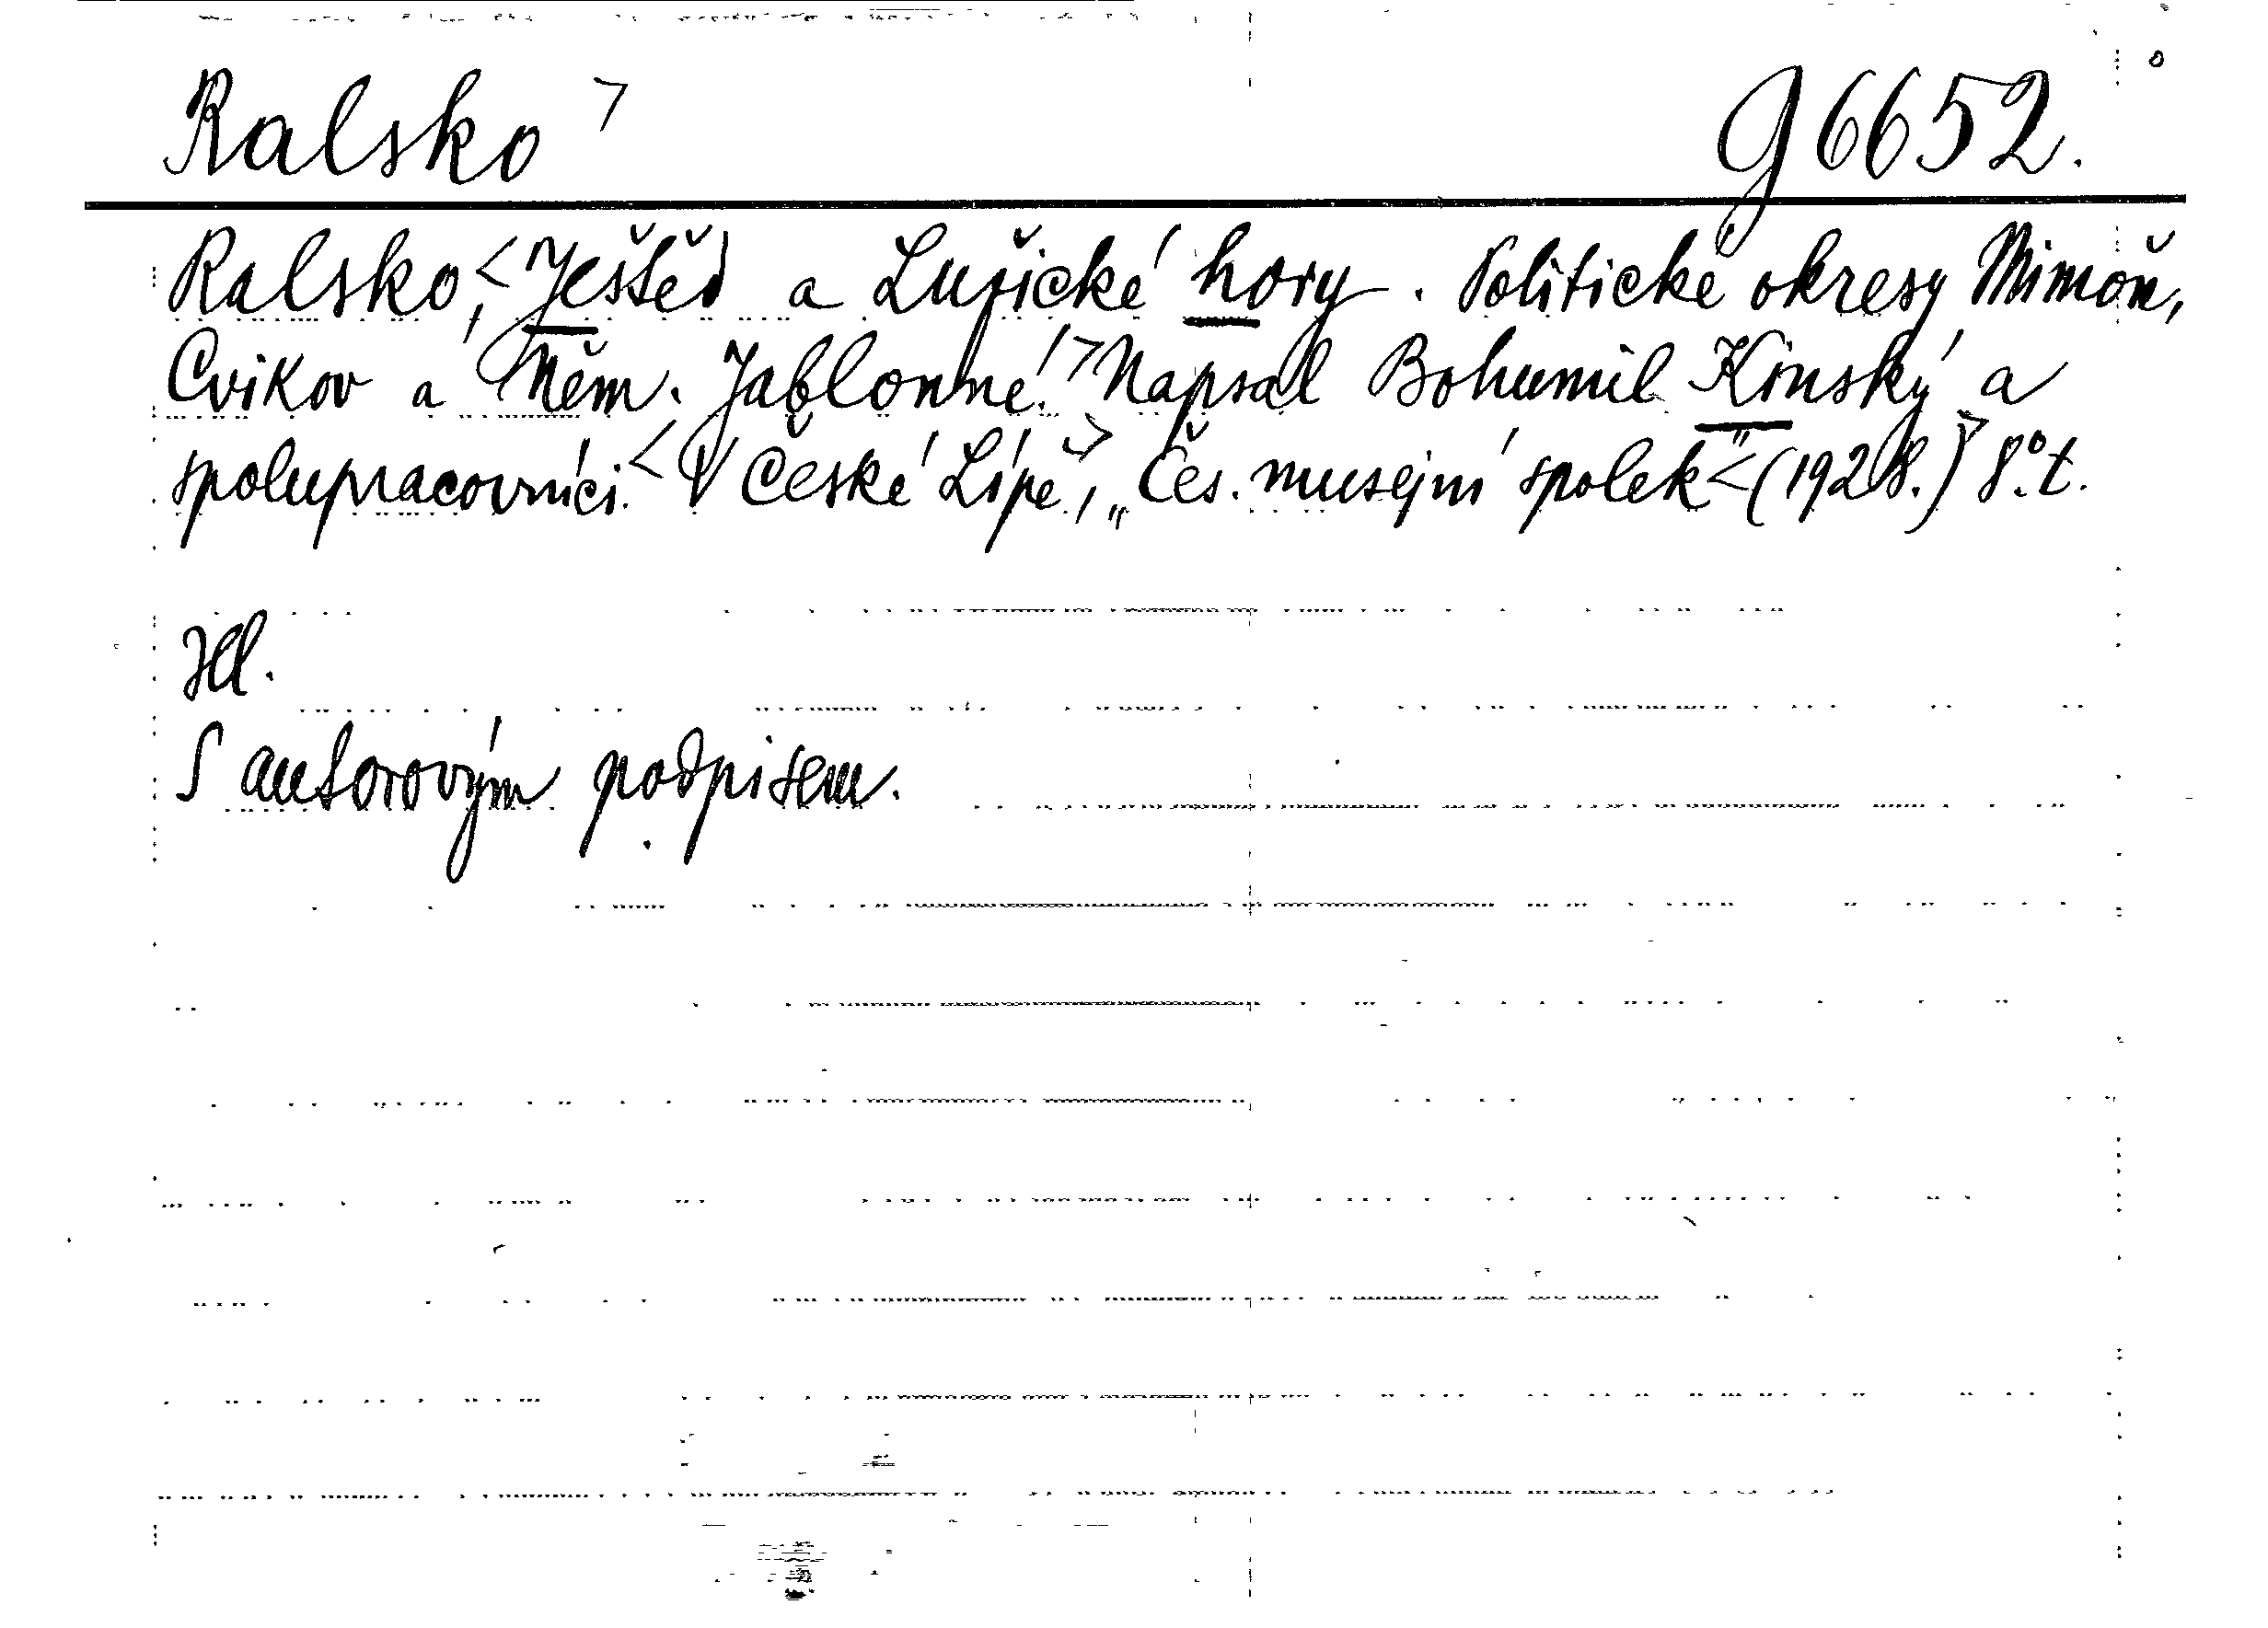 Ralsko > g 6652.
Ralsko, < Ještěd a Lužické hory. Politické okresy Mimoň,
Cvikov a Něm. Jablonné. > Napsal Bohumil Kinský a
spolupracovníci. < V České Lípě, > „Čes. musejní spolek" < (1928.) > 8°. t.
Ill.
S autorovým podpisem.